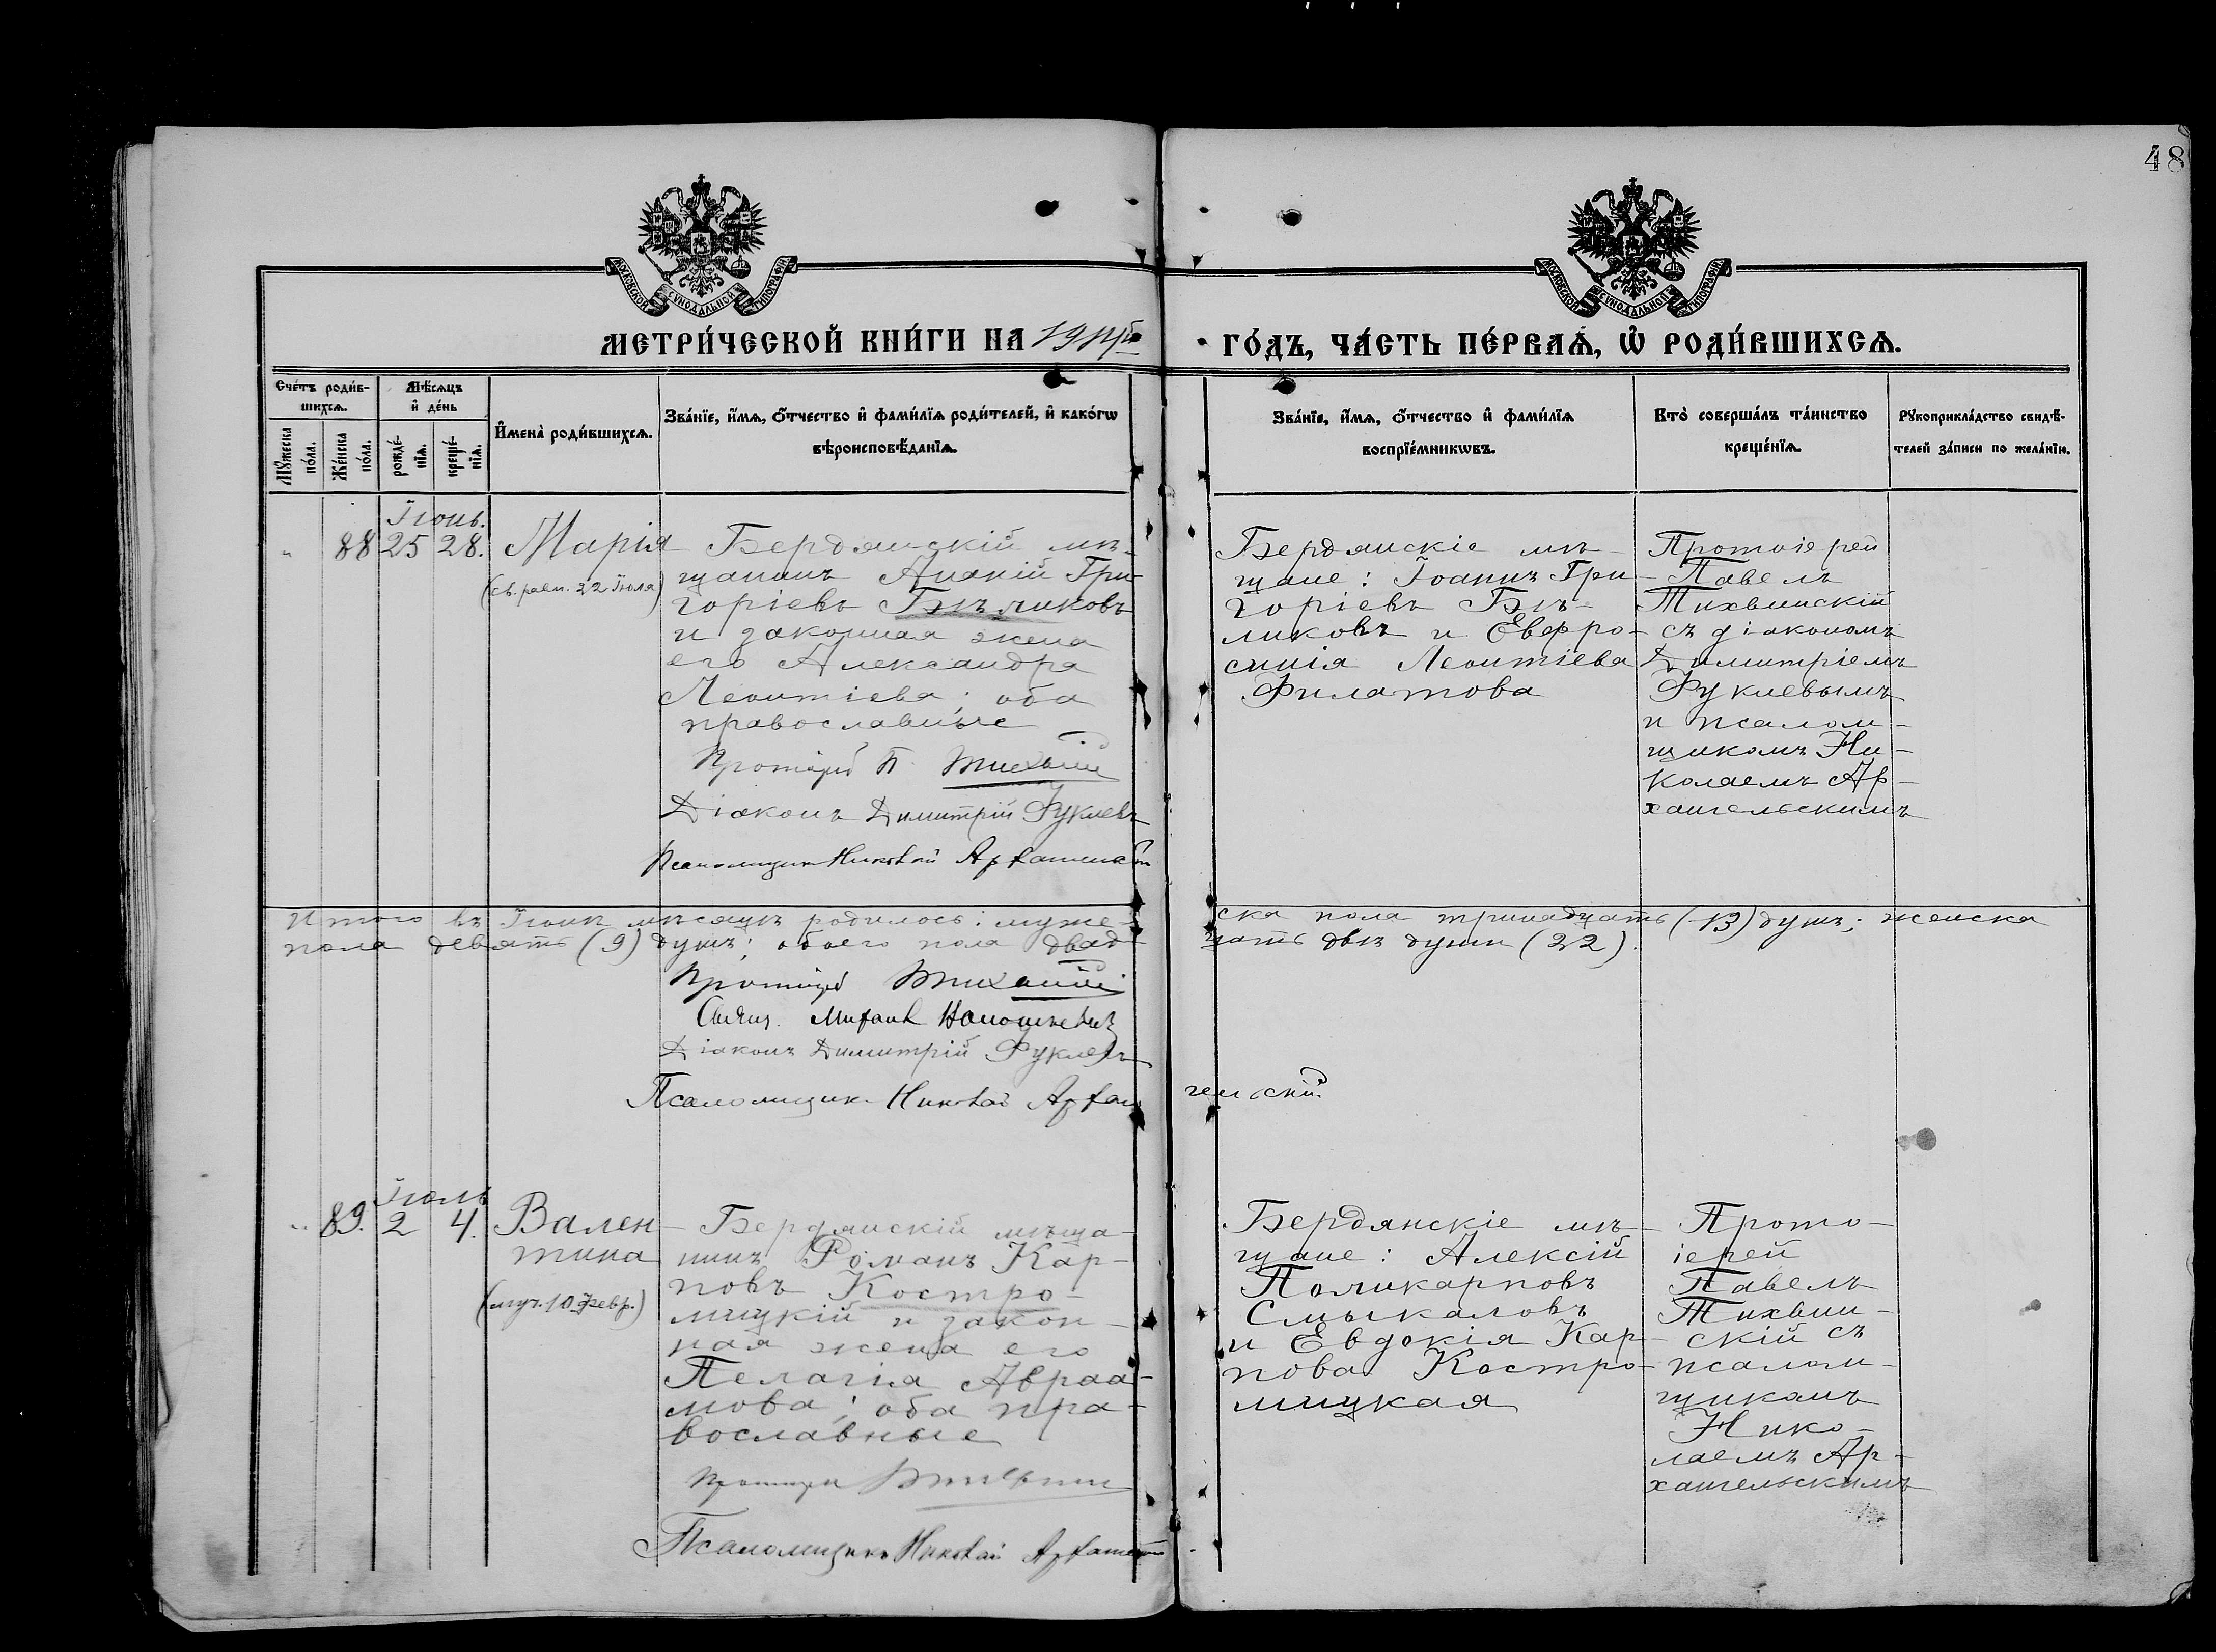 48
МОСКОВСКОЙ СѴНОДАЛЬНОЙ ТИПОГРАФІИ
МОСКОВСКОЙ СѴНОДАЛЬНОЙ ТИПОГРАФІИ
МЕТРИ́ЧЕСКОЙ КНИ́ГИ НА
ГО́ДЪ, ЧА́СТЬ ПЕ́РВАѦ, Ѡ҆ РОДИ́ВШИХСѦ.
Сче́тъ роди́в-
шихсѧ.
Мꙋ́жеска по́ла.
Же́нска по́ла.
Мѣ́сѧцъ
и҆ де́нь
рожде́-
нїѧ.
креще́-
нїѧ.
И҆мена̀ роди́вшихсѧ.
Зва́нїе, и҆́мѧ, ѻ҆́тчество и҆ фами́лїѧ роди́телей, и҆ како́гѡ
вѣроисповѣ́данїѧ.
Зва́нїе, и҆́мѧ, ѻ҆́тчество и҆ фами́лїѧ
воспрїе́мникѡвъ.
Кто̀ соверша́лъ та́инство
креще́нїѧ.
Рꙋкоприкла́дство свидѣ́-
телей за́писи по жела́нїю.
Іюнь.
" 88 25 28.
Марія
(св. равн. 22 Іюля)
Бердянскій мѣ-
щанинъ Ананій Гри-
горіевъ Бѣликовъ
и законная жена
его Александра
Леонтіева; оба
православные
Протоіерей П. Тихвинскій
Діаконъ Димитрій Фуклевъ
Псаломщикъ Николай Архангельскій
Бердянскіе мѣ-
щане: Іоаннъ Гри-
горіевъ Бѣ-
ликовъ и Евфро-
синія Леонтіева
Филатова
Протоіерей
Павелъ
Тихвинскій
съ діакономъ
Димитріемъ
Фуклевымъ
и псалом-
щикомъ Ни-
колаемъ Ар-
хангельскимъ
Итого въ Іюнѣ мѣсяцѣ родилось: муже-
ска пола тринадцать (13) душъ; женска
пола девять (9) душъ; обоего пола двад-
цать двѣ души (22).
Протоіерей Тихвинскій
Свящ. Михаил
Діаконъ Димитрій Фуклевъ
Псаломщикъ Николай Архан
гельскій.
Іюль
" 89. 2 4.
Вален-
тина
(муч. 10 Февр.)
Бердянскій мѣща-
нинъ Романъ Кар-
повъ Костро-
мицкій и закон-
ная жена его
Пелагія Авраа-
мова; оба пра-
вославные
Протоіерей Тихвинскій
Псаломщикъ Николай Архангельскій
Бердянскіе мѣ-
щане: Алексій
Поликарповъ
Смыкаловъ
и Евдокія Кар-
пова Костро-
мицкая
Прото-
іерей
Павелъ
Тихвин-
скій съ
псалом-
щикомъ
Нико-
лаемъ Ар-
хангельскимъ